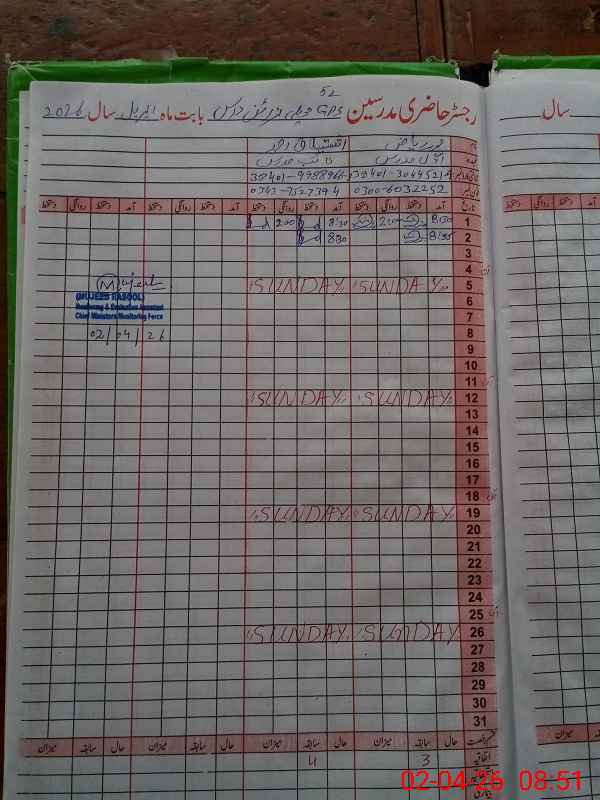 52
رجسٹر حاضری مدرسین GPS بابت ماہ اپریل سال 2026
سال
نام
اول مدرس
نائب مدرس
0300-6032252
0343-7527394
تاریخ آمد دستخط روانگی دستخط آمد دستخط روانگی دستخط آمد دستخط روانگی دستخط آمد دستخط روانگی دستخط
1 8:30 2:00 8:30 2:00
2 8:35 8:30
3
4
5 SUNDAY SUNDAY
Mujeeb
(MUJEEB RASOOL)
Monitoring & Evaluation Assistant
Chief Ministers Monitoring Force
02/04/26
6
7
8
9
10
11
12 SUNDAY SUNDAY
13
14
15
16
17
18
19 SUNDAY SUNDAY
20
21
22
23
24
25
26 SUNDAY SUNDAY
27
28
29
30
31
حال سابقہ میزان حال سابقہ میزان حال سابقہ میزان حال سابقہ میزان
اتفاقیہ 3 4
02-04-26 08:51